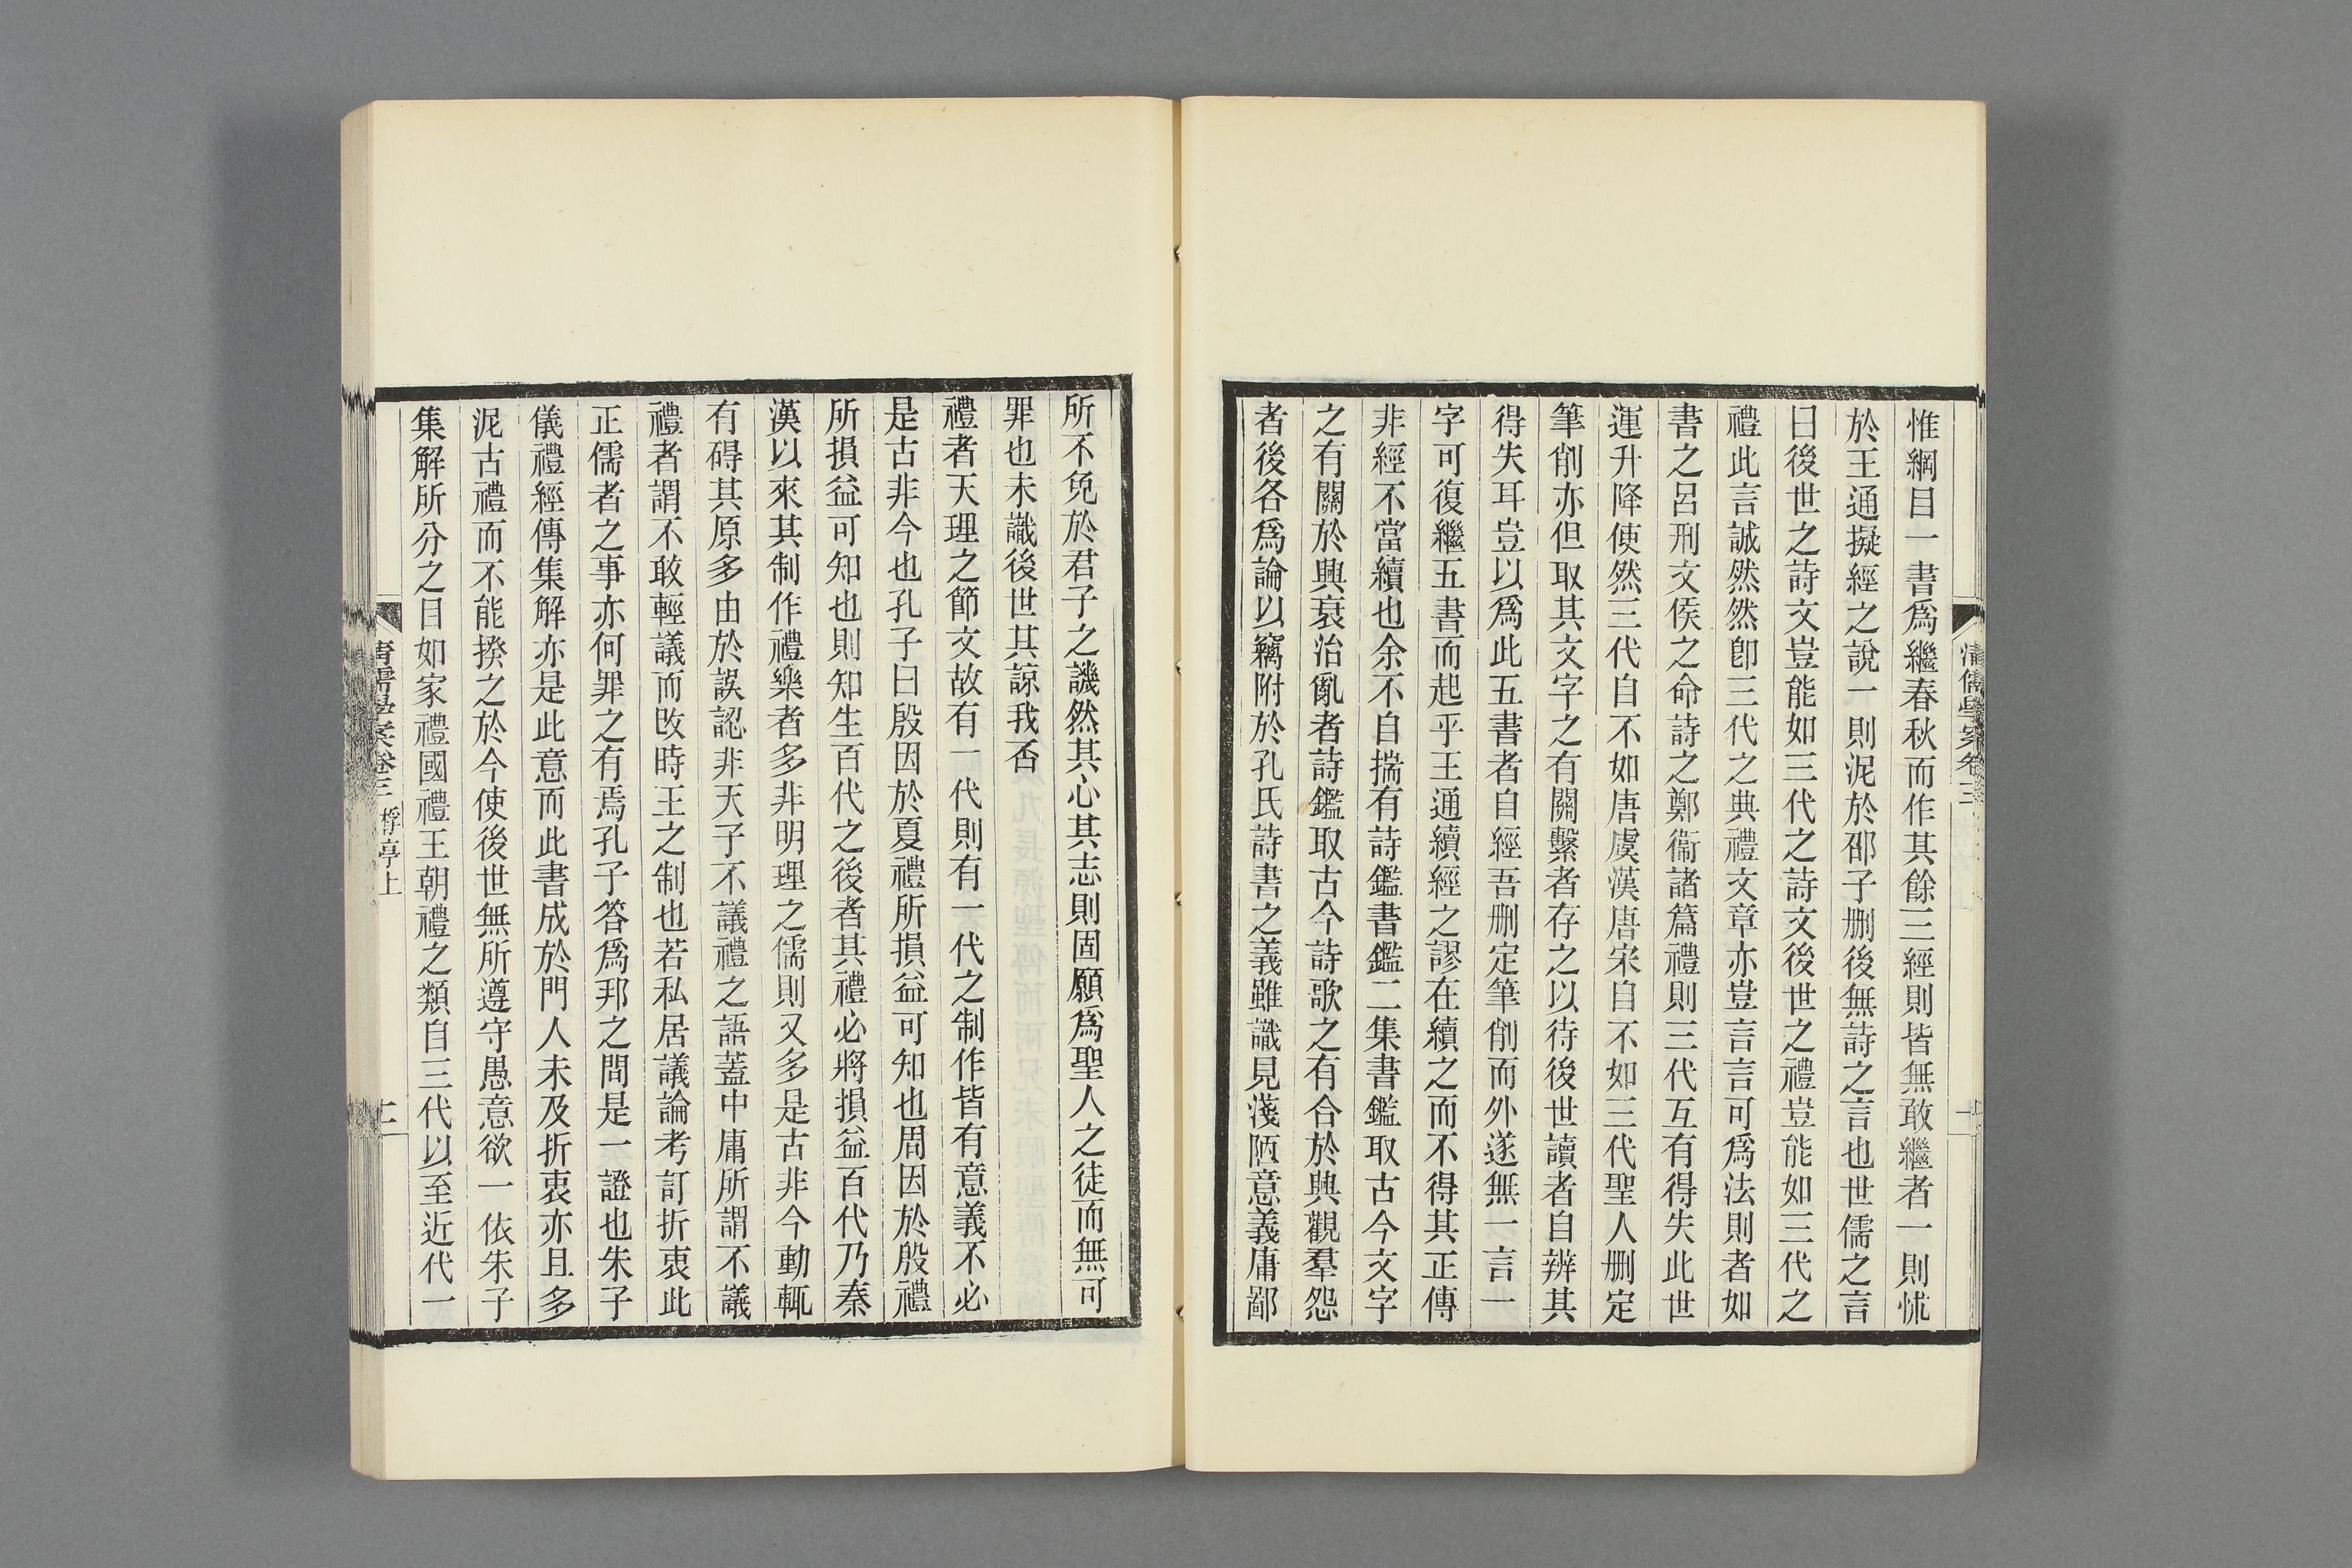 惟綱目一書爲繼春秋而作其餘三經則皆無敢繼者一則怵
於王通擬經之說一則泥於邵子刪後無詩之言也世儒之言
曰後世之詩文豈能如三代之詩文後世之禮豈能如三代之
禮此言誠然然卽三代之典禮文章亦豈言言可爲法則者如
書之呂刑文侯之命詩之鄭衞諸篇禮則三代互有得失此世
運升降使然三代自不如唐虞漢唐宋自不如三代聖人刪定
筆削亦但取其文字之有關繫者存之以待後世讀者自辨其
得失耳豈以爲此五書者自經吾刪定筆削而外遂無一言一
字可復繼五書而起乎王通續經之謬在續之而不得其正傳
非經不當續也余不自揣有詩鑑書鑑二集書鑑取古今文字
之有關於興衰治亂者詩鑑取古今詩歌之有合於興觀羣怨
者後各爲論以竊附於孔氏詩書之義雖識見淺陋意義庸鄙
清儒學案卷三
所不免於君子之譏然其心其志則固願爲聖人之徒而無可
罪也未識後世其諒我否
禮者天理之節文故有一代則有一代之制作皆有意義不必
是古非今也孔子曰殷因於夏禮所損益可知也周因於殷禮
所損益可知也則知生百代之後者其禮必將損益百代乃秦
漢以來其制作禮樂者多非明理之儒則又多是古非今動輒
有碍其原多由於誤認非天子不議禮之語蓋中庸所謂不議
禮者謂不敢輕議而改時王之制也若私居議論考訂折衷此
正儒者之事亦何罪之有焉孔子答爲邦之問是一證也朱子
儀禮經傳集解亦是此意而此書成於門人未及折衷亦且多
泥古禮而不能揆之於今使後世無所遵守愚意欲一依朱子
集解所分之目如家禮國禮王朝禮之類自三代以至近代一
清儒學案卷三 桴亭上